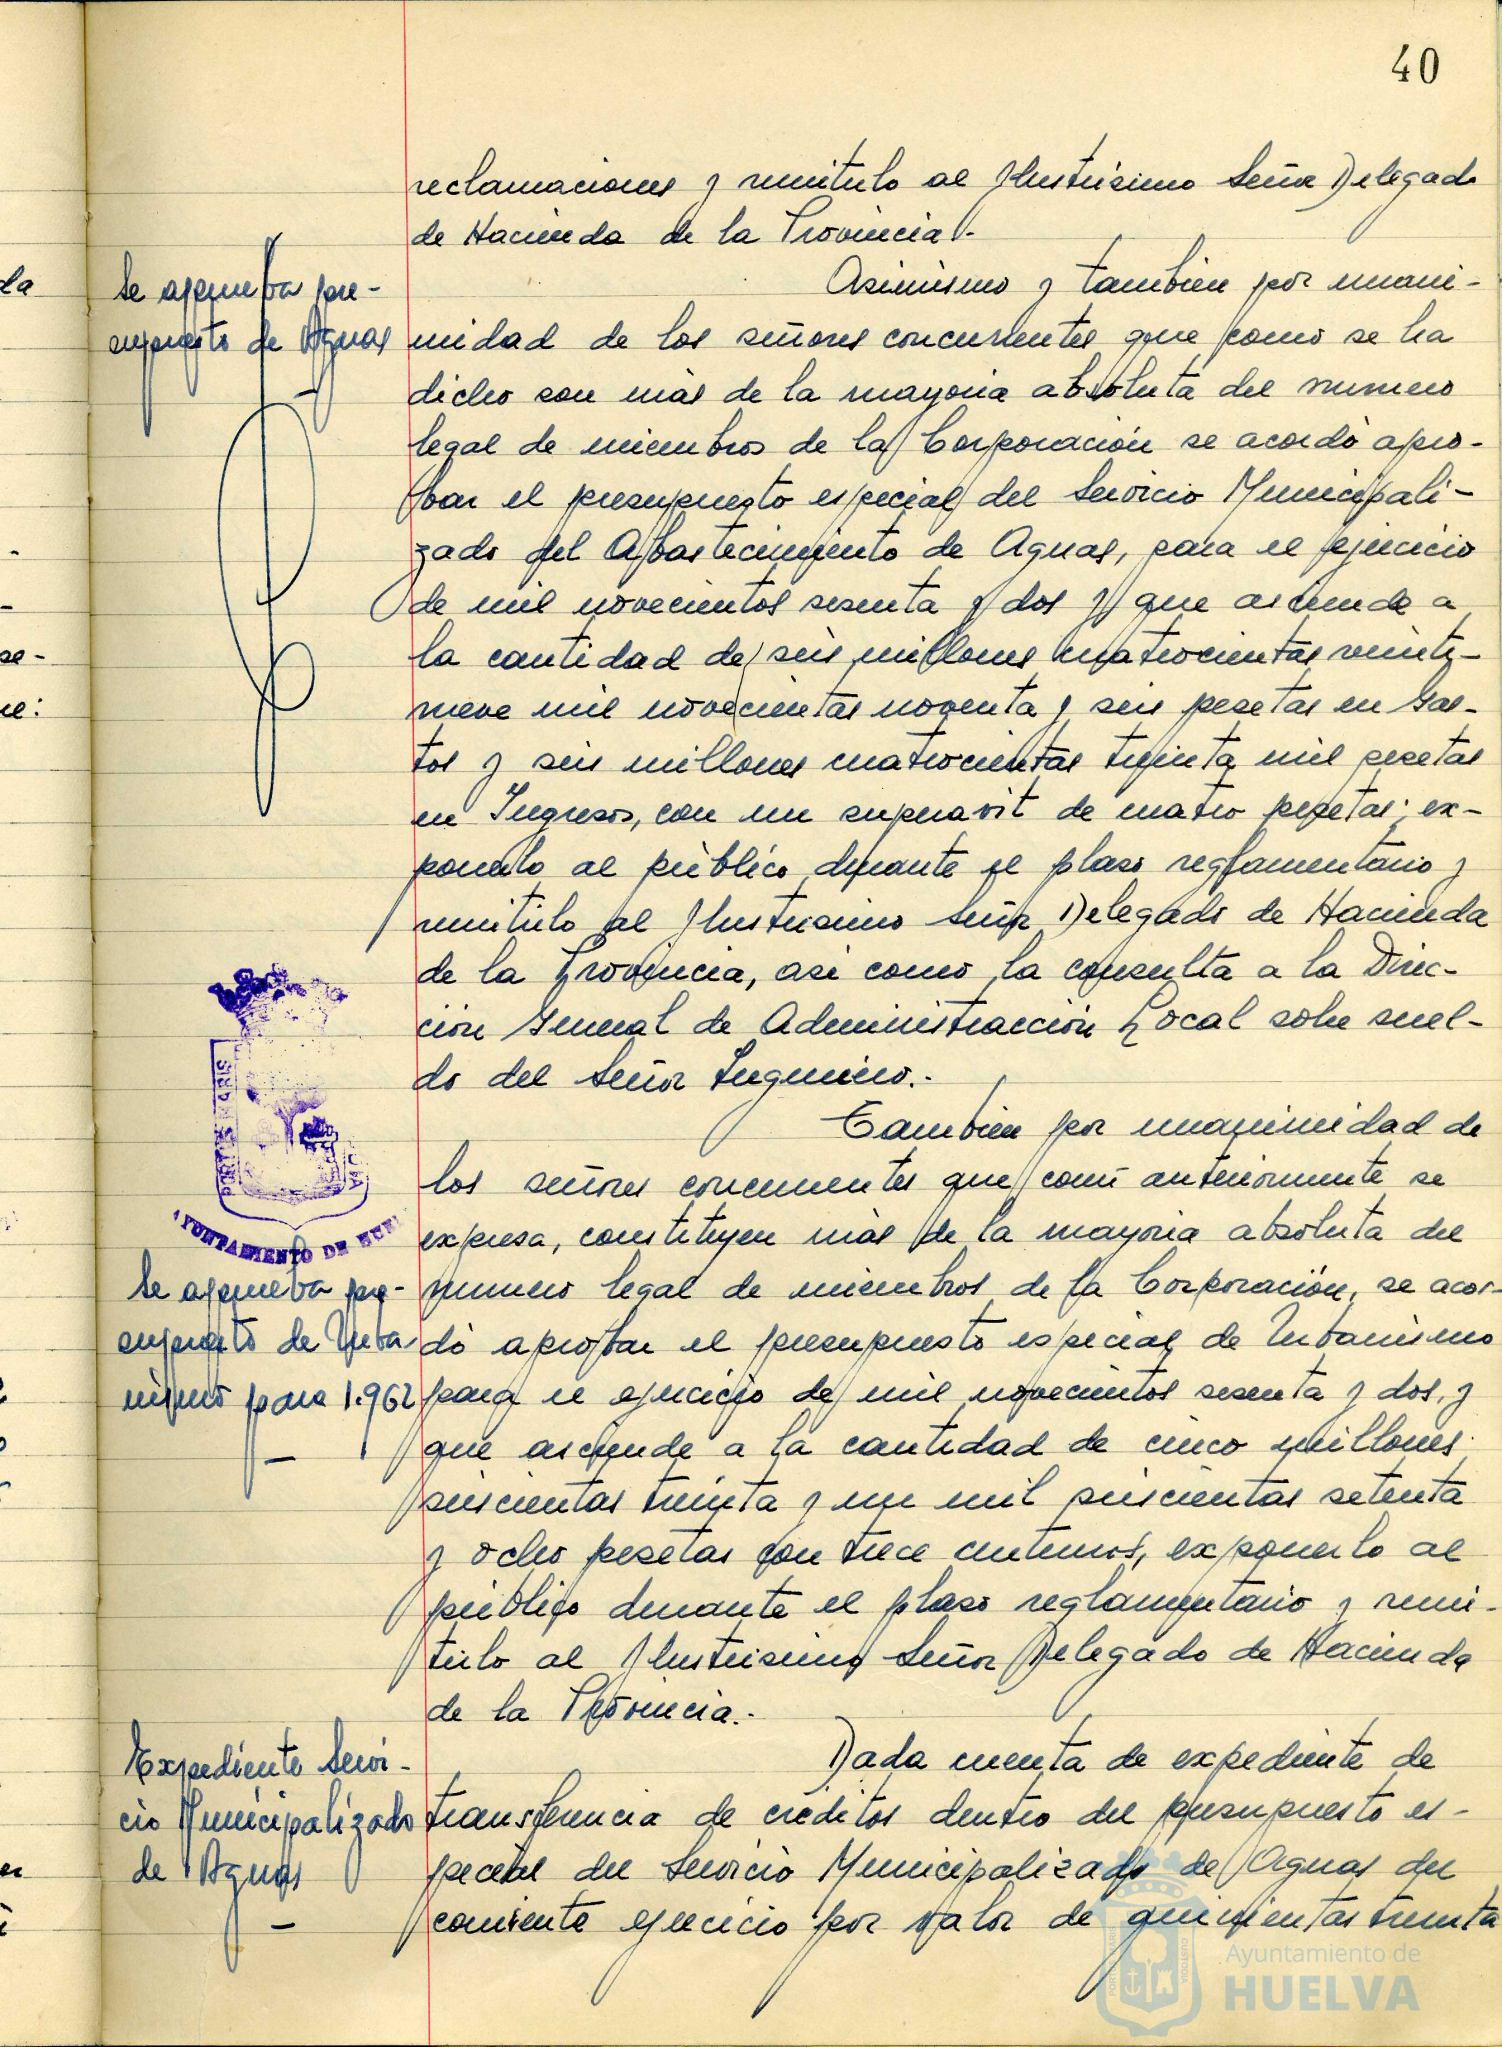 40
reclamaciones y remitirlo al Ilustrisimo Señor Delegado
de Hacienda de la Provincia.-
Se aprueba pre-
supuesto de Aguas
Asimismo y tambien por unani-
midad de los señores concurrentes que como se ha
dicho son más de la mayoria absoluta del numero
legal de miembros de la Corporación se acordó apro-
bar el presupuesto especial del Servicio Municipali-
zado del Abastecimiento de Aguas, para el ejercicio
de mil novecientos sesenta y dos y que asciende a
la cantidad de seis millones cuatrocientas veinti-
nueve mil novecientas noventa y seis pesetas en Gas-
tos y seis millones cuatrocientas treinta mil pesetas
en Ingresos, con un superavit de cuatro pesetas; ex-
ponerlo al público durante el plazo reglamentario y
remitirlo al Ilustrisimo Señor Delegado de Hacienda
de la Provincia, asi como la consulta a la Direc-
ción General de Administracción Local sobre suel-
do del Señor Ingeniero.-
PORTUS MARIS
AYUNTAMIENTO DE HUEL
Se aprueba pre-
supuesto de Urba-
nismo para 1.962
Tambien por unanimidad de
los señores concurrentes que como anteriormente se
expresa, constituyen más de la mayoria absoluta del
numero legal de miembros de la Corporación, se acor-
dó aprobar el presupuesto especial de Urbanismo
para el ejercicio de mil novecientos sesenta y dos, y
que asciende a la cantidad de cinco millones
seiscientas treinta y un mil seiscientas setenta
y ocho pesetas con trece centimos, exponerlo al
público durante el plazo reglamentario y remi-
tirlo al Ilustrisimo Señor Delegado de Hacienda
de la Provincia.-
Expediente Servi-
cio Municipalizado
de Aguas
Dada cuenta de expediente de
transferencia de creditos dentro del presupuesto es-
pecial del Servicio Municipalizado de Aguas del
corriente ejercicio por valor de quinientas treinta
Ayuntamiento de
HUELVA